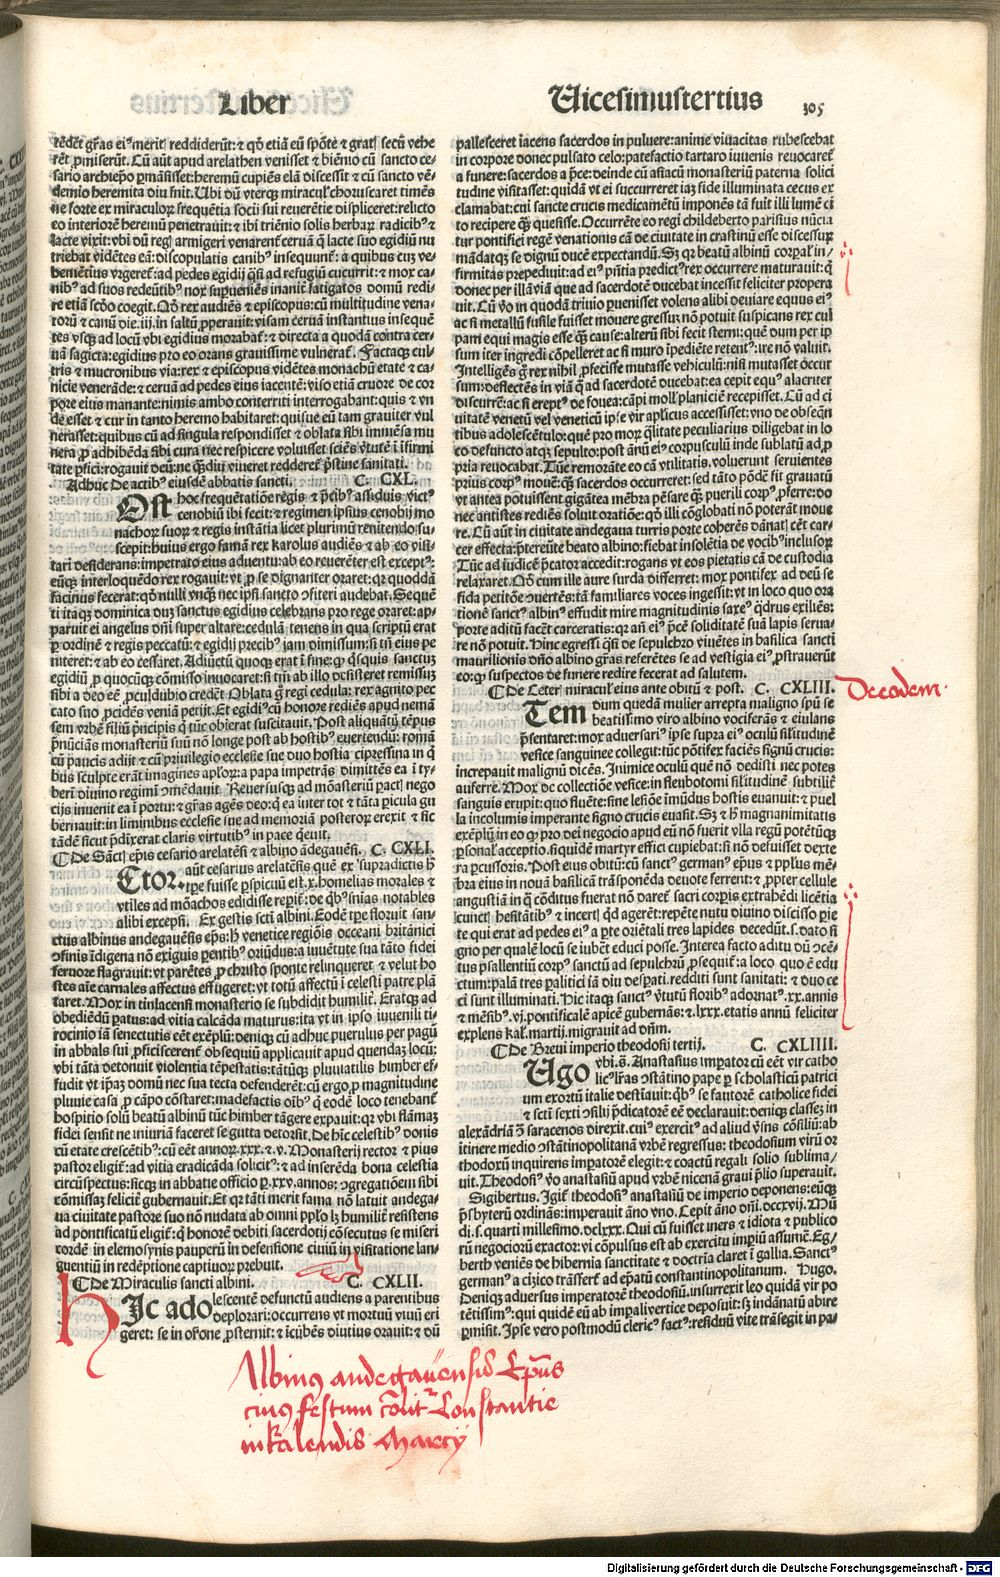 Liber
Uicesimustertius 305
rēdēt gr̄as ei⁹ meritꝭ reddiderūt: ⁊ qd̄ etiā eū spōte ⁊ gratꝭ secū vehe
rēt ꝓmiserūt. Cū aūt apud arelathen venisset ⁊ biēnio cū sancto ce-
sario archiepo pmāsisset: heremū cupiēs elā discessit ⁊ cū sancto ve-
demio heremita diu fuit. Ubi dū vterqꝫ miraculꝭ choruscaret timēs
ne forte ex miraculoꝝ frequētia socii sui reuerētie displiceret: relicto
eo interiorē heremū penetrauit: ⁊ ibi triēnio solis herbaꝝ radicib⁹ ⁊
lacte vixit: vbi dū regꝭ armigeri venarent̄ ceruā q̄ lacte suo egidiū nu
triebat vidētes eā: discopulatis canib⁹ insequunt̄: a quibus cuꝫ ve-
hemētius vrgeret̄: ad pedes egidij q̄si ad refugiū cucurrit: ⁊ mox ca-
nib⁹ ad suos redeūtib⁹ nox supueniēs inanit̄ fatigatos domū redi-
re etiā scd̄o coegit. Qd̄ rex audiēs ⁊ episcopus: cū multitudine vena-
torū ⁊ canū die .iii. in saltū ꝓperauit: visam ceruā instantius insequē
tes vsqꝫ ad locū vbi egidius morabat̄: ⁊ directa a quodā contra cer-
uā sagitta: egidius pro eo orans grauissime vulnerat̄. Factaqꝫ cul
tris ⁊ mucronibus via: rex ⁊ episcopus vidētes monachū etate ⁊ ca-
nicie venerāde: ⁊ ceruā ad pedes eius iacentē: viso etiā cruore de cor
pore eius manante: nimis ambo conterriti interrogabant: quis ⁊ vn
de esset ⁊ cur in tanto heremo habitaret: quisue eū tam grauiter vul
nerasset: quibus cū ad singula respondisset ⁊ oblata sibi immēsa mu
nera ꝓ adhibēda sibi cura nec respicere voluisset sciēs v̓tutē ī īfirmi
tate ꝑfici: rogauit deū: ne q̄diu viueret redderet̄ pristine sanitati.
Adhuc De actib⁹ eiusdē abbatis sancti. C. CXL.
Ost hoc frequētatiōe regis ⁊ ꝑcib⁹ assiduis vict⁹
cenobiū ibi fecit: ⁊ regimen ipsius cenobij mo
nachoꝝ suoꝝ ⁊ regis instātia licet plurimū renitendo su-
scepit: huius ergo famā rex karolus audiēs ⁊ ab eo visi-
tari desiderans: impetrato eius aduentu: ab eo reuerēter est except⁹:
eūqꝫ interloquēdo rex rogauit: vt ꝓ se dignanter oraret: qꝛ quoddā
facinus fecerat: qd̄ nulli vnqꝫ nec ip̄i sancto ↄfiteri audebat. Sequē
ti itaqꝫ dominica duꝫ sanctus egidius celebrans pro rege oraret: ap-
paruit ei angelus dn̄i super altare: cedulā tenens in qua scriptū erat
ꝑ ordinē ⁊ regis peccatū: ⁊ egidij precib⁹ iam dimissum: si tn̄ eius pe
niteret: ⁊ ab eo cessaret. Adiūctū quoqꝫ erat ī fine: qꝫ q̄squis sanctuꝫ
egidiū ꝓ quocūqꝫ cōmisso inuocaret: si tn̄ ab illo desisteret remissuꝫ
sibi a deo eē ꝑculdubio credēt. Oblata ḡ regi cedula: rex agnito pec
cato suo ꝓcidēs veniā petijt. Et egidi⁹ cū honore rediēs apud nemā
sem vrbē filiū prīcipis q̄ tūc obierat suscitauit. Post aliquātū tēpus
pnūciās monasteriū suū nō longe post ab hostib⁹ euertendū: romā
cū paucis adijt ⁊ cū priuilegio ecclesie sue duo hostia cipressina in q̄
bus sculpte erāt imagines aploꝝ: a papa impetrās dimittēs ea ī ty-
beri diuino regimi ↄmēdauit. Reuersusqꝫ ad mōasteriū pactꝭ nego
cijs inuenit ea ī portu: ⁊ gr̄as agēs deo: q̄ ea inter tot ⁊ tāta ꝑicula gu
bernauit: in liminibus ecclesie sue ad memoriā posteroꝝ erexit ⁊ sic
tādē sicut pdixerat claris virtutib⁹ in pace q̄euit.
De Sāctꝭ ep̄is cesario arelatēsi ⁊ albino ādegauēsi. C. CXLI.
Ctor. aūt cesarius arelatēsis quē ex supradictis h̄
tꝑe fuisse ꝑspicuū est .x. homelias morales ⁊
vtiles ad mōachos edidisse reperit̄: de q̄b⁹ snias notabiles
alibi excepsi. Ex gestis scti albini. Eodē tꝑe floruit san-
ctus albinus andegauēsis ep̄s: h̄ venetice regiōis occeani britanici
ↄfinis īdigena nō exiguis parentib⁹ oriūdus: a iuuētute sua tāto fidei
feruore flagrauit: vt parētes ꝓ christo sponte relinqueret ⁊ velut ho
stes aīe carnales affectus effugeret: vt totū affectū ī celesti patre plā
taret. Mox in tinlacensi monasterio se subdidit humilit̄. Eratqꝫ ad
obediēdū paratus: ad vitia calcāda maturus: ita vt in ipso iuuenili ti-
rocinio iā senectutis eēt exēplū: deniqꝫ cū adhuc puerulus per pagū
in abbatis sui ꝓficiscerent̄ obsequiū applicauit apud quendaꝫ locū:
vbi tāta detonuit violentia tēpestatis: tātūqꝫ pluuiatilis himber ef-
fudit vt ip̄aꝫ domū nec sua tecta defenderēt: cū ergo ꝓ magnitudine
pluuie casa ꝓ cāpo cōstaret: madefactis oīb⁹ q̄ eodē loco tenebant̄
hospitio solū beatū albinū tūc himber tāgere expauit: qꝛ vbi flāmaꝫ
fidei sensit ne iniuriā faceret se gutta detorsit. De hic celestib⁹ donis
cū etate crescētib⁹: cū eēt annoꝝ .xxx. ⁊ .v. Monasterij rector ⁊ pius
pastor eligit̄: ad vitia eradicāda solicit⁹: ⁊ ad inserēda bona celestia
circūspectus: sicqꝫ in abbatie officio ꝑ .xxv. annos: ↄgregatiōem sibi
cōmissaꝫ felicit̄ gubernauit. Et qꝛ tāti merit fama nō latuit andega-
ua ciuitate pastore suo nō nudata ab omni ppl̓o lꝫ humilit̄ resistens
ad pontificatū eligit̄: q̄ honorē debiti sacerdotij cōsecutus se miseri
cordē in elemosynis pauperū in defensione ciuiū in visitatione lan-
guentiū in redēptione captiuoꝝ prebuit.
De Miraculis sancti albini. C. CXLII.
H
Ic adolescentē defunctū audiens a parentibus
deplorari: occurrens vt mortuū viuū eri
geret: se in orōne ꝓsternit: ⁊ icūbēs diutius orauit: ⁊ dū
pallesceret iacens sacerdos in puluere: anime viuacitas rubescebat
in corpore donec pulsato celo: patefacto tartaro iuuenis reuocaret̄
a funere: sacerdos a pce: deinde cū asiacū monasteriū paterna solici
tudine visitasset: quidā vt ei succurreret iaꝫ fide illuminata cecus ex
clamabat: cui sancte crucis medicamētū imponēs tā fuit illi lumē ci
to recipere qꝫ quesisse. Occurrēte eo regi childeberto parisius nūcia
tur pontifici regē venationis cā de ciuitate in crastinū esse discessuꝝ
mādatqꝫ se dignū ducē expectandū. Sꝫ qꝛ beatū albinū corꝑal̓ in-
firmitas prepediuit: ad ei⁹ pn̄tia predict⁹ rex occurrere maturauit: q̄
donec per illā viā que ad sacerdotē ducebat incessit feliciter propera
uit. Cū vō in quodā triuio ꝑuenisset volens alibi deuiare equus ei⁹
ac si metallū fusile fuisset mouere gressuꝫ nō potuit suspicans rex cul
pam equi magis esse qꝫ cause: alterū sibi fecit sterni: quē dum per ip
sum iter ingredi cōpelleret ac si muro īpediēte retent⁹: ire nō valuit.
Intelligēs ḡ rex nihil ꝓfecisse mutasse vehiculū: nisi mutasset occur
sum: deflectēs in viā q̄ ad sacerdotē ducebat: ea cepit equ⁹ alacriter
discurrē: ac si erept⁹ de fouea: cāpi mollꝭ planiciē recepisset. Cū ad ci
uitatē venetū vel veneticū ip̄e vir aplicus accessisset: vno de obseqn̄
tibus adolescētulo: quē pro moꝝ q̄litate peculiarius diligebat in lo
eo defuncto atqꝫ sepulto: post annū ei⁹ corpusculū inde sublatū ad ꝓ
pria reuocabat. Tūc remorāte eo cā vtilitatis, voluerunt seruientes
prius corp⁹ mouē: qꝫ sacerdos occurreret: sed tāto pōdē fit grauatū
vt antea potuissent gigātea mēbra pēsare qꝫ puerili corp⁹ ꝓferre: do
nec antistes rediēs soluit oratiōe: qd̄ illi cōglobati nō poterāt moue
re. Cū aūt in ciuitate andegaua turris porte coherēs dānatꝭ cēt car-
cer effecta: ptereūte beato albino: fiebat insolētia de vocib⁹ inclusoꝝ
Tūc ad iudicē pcator accedit: rogans vt eos pietatis cā de custodia
relaxaret. Qd̄ cum ille aure surda differret: mox pontifex ad deū se
fida petitōe ↄuertēs: tā familiares voces ingessit: vt in loco quo ora
tionē sanct⁹ albin⁹ effudit mire magnitudinis saxe⁹ q̄drus exiliēs:
porte aditū facēt carceratis: qꝛ an̄ ei⁹ pcē soliditatē suā lapis serua-
re nō potuit. Hinc egressi q̄si de sepulchro viuētes in basilica sancti
maurilionis dn̄o albino gr̄as referētes se ad vestigia ei⁹ ꝓstrauerūt
eo: qꝫ suspectos de funere redire fecerat ad salutem.
De Ceterꝭ miraculꝭ eius ante obitū ⁊ post. C. CXLIII.
De eodem.
Tem dum quedā mulier arrepta maligno spū se
beatissimo viro albino vociferās ⁊ eiulans
psentaret: mox aduersari⁹ ip̄e supra ei⁹ oculū similitudinē
vesice sanguinee collegit: tūc pōtifex faciēs signū crucis:
increpauit malignū dicēs. Inimice oculū quē nō dedisti nec potes
auferre. Mox de collectiōe vesice: in fleubotomi similitudinē subtilit̄
sanguis erupit: quo fluēte: sine lesiōe īmūdus hostis euanuit: ⁊ puel
la incolumis imperante signo crucis euasit. Sꝫ ⁊ h̄ magnanimitatis
exēplū: in eo qꝫ pro dei negocio apud eū nō fuerit vlla regū potētūqꝫ
ꝑsonal̓ acceptio. siquidē martyr effici cupiebat: si nō defuisset dexte
ra ꝑcussoris. Post eius obitū: cū sanct⁹ german⁹ ep̄us ⁊ pplus mē-
bra eius in nouā basilicā trāsponēda deuote ferrent: ⁊ ꝓpter cellule
angustiā in q̄ cōditus fuerat nō daret̄ sacri corꝑis extrahēdi licētia
cunctꝭ hesitātib⁹ ⁊ incertꝭ qd̄ agerēt: repēte nutu diuino discisso parie
te qui erat ad pedes ei⁹ a pte oriētali tres lapides decedūt .s. dato si
gno per qualē locū se iubēt educi posse. Interea facto aditu dū ↄcē-
tus psallentiū corp⁹ sanctū ad sepulchrū ꝓsequit̄: a loco quo ē edu
ctum: palā tres ꝑalitici iā diu despati. redditi sunt sanitati: ⁊ duo ce
ci sunt illuminati. Hic itaqꝫ sanct⁹ v̓tutū florib⁹ adornat⁹ .xx. annis
⁊ mēsib⁹ .vj. pontificalē apicē gubernās: ⁊ .lxxx. etatis annū feliciter
explens kal̓. martij. migrauit ad dn̄m.
De Breui imperio theodosij tertij. C. CXLIIII.
Ugo vbi .s. Anastasius imꝑator cū eēt vir catho
lic⁹ l̓ras ↄstātino pape ꝑ scholasticū patrici
um exortū italie destīauit: q̄b⁹ se fautorē catholice fidei
⁊ scti sexti ↄsilij pdicatorē eē declarauit: deniqꝫ classeꝫ in
alexādriā ↄ saracenos direxit. cui⁹ exercit⁹ ad aliud v̓sns cōsiliū: ab
itinere medio ↄstātinopolitanā vrbē regressus: theodosium virū or
thodoxū inquirens imꝑatorē elegit: ⁊ coactū regali solio sublima-
uit. Theodosi⁹ vō anastasiū apud vrbē nicenā graui plio superauit.
Sigibertus. Igit̄ theodosi⁹ anastasiū de imperio deponens: eūqꝫ
psbyterū ordināns: imperauit āno vno. Cepit āno dn̄i .dccxvij. Mū
di .s. quarti millesimo .dclxxx. Qui cū fuisset iners ⁊ idiota ⁊ publico
rū negociorū exactor: vi cōpulsus est ab exercitu imꝑiū assumē. Eg-
berth veniēs de hibernia sanctitate ⁊ doctrīa claret ī gallia. Sanct⁹
german⁹ a cizico trāsfert̄ ad ep̄atū constantinopolitanum. Hugo.
Deniqꝫ aduersus imꝑatorē theodosiū, insurrexit leo quidā vir po
tētissim⁹: qui quidē eū ab imꝑali vertice deposuit: sꝫ indānatū abire
ꝑmisit. Ip̄e vero postmodū cleric⁹ fact⁹: residuū vite trāsegit in pa-
Albinus andegauensis Ep̄us
cuius festum colit̄ Constantie
in kalendis Marcij
Digitalisierung gefördert durch die Deutsche Forschungsgemeinschaft - DFG